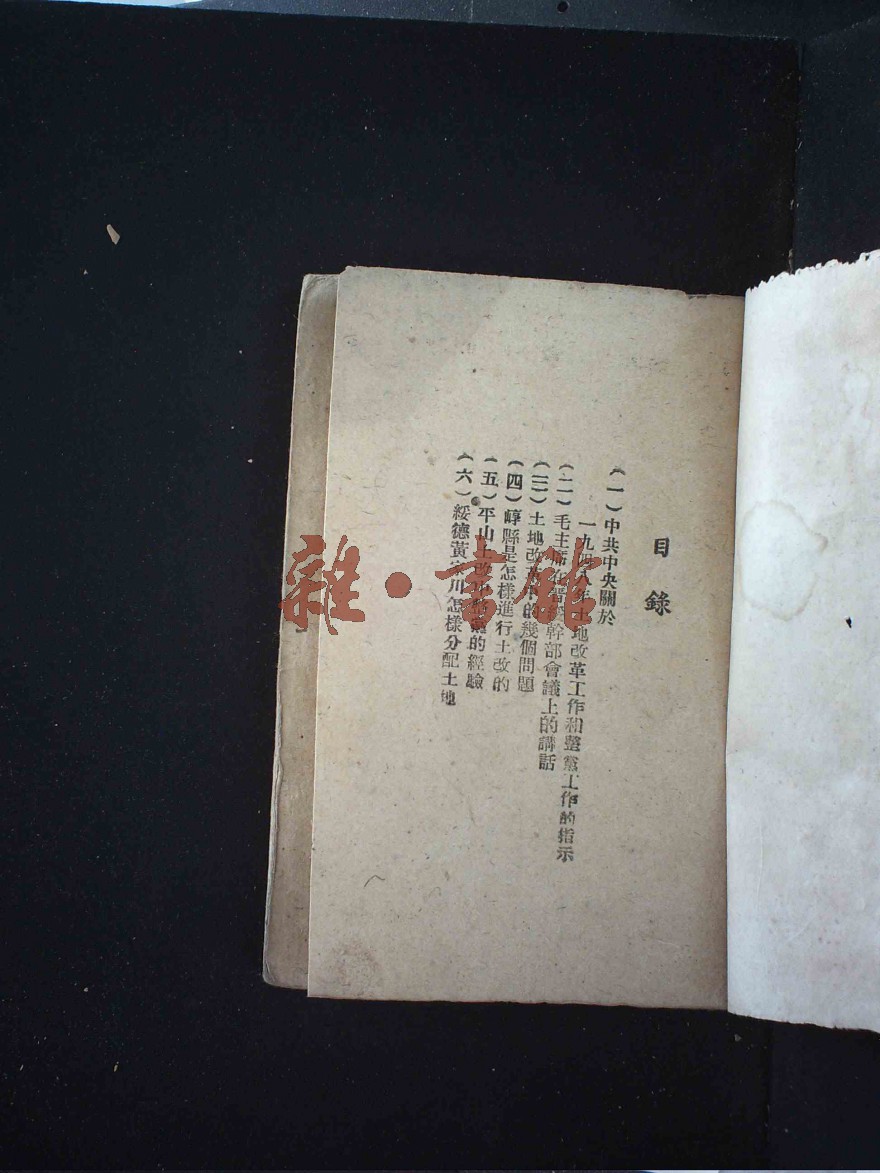 目錄
(一)中共中央關於
一九四八年土地改革工作和整黨工作的指示
(二)毛主席在晋綏幹部會議上的講話
(三)土地改革中的幾個問題
(四)崞縣是怎樣進行土改的
(五)平山土改和整黨的經驗
(六)綏德黃家川怎樣分配土地
雜·書館